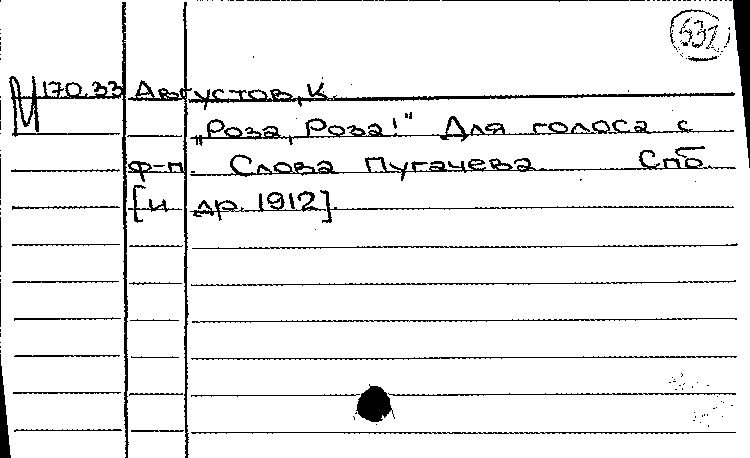 532
М 170.33 Августов, К.
„Роза, Роза!" Для голоса с
ф-п. Слова Пугачева Спб
[и др. 1912]